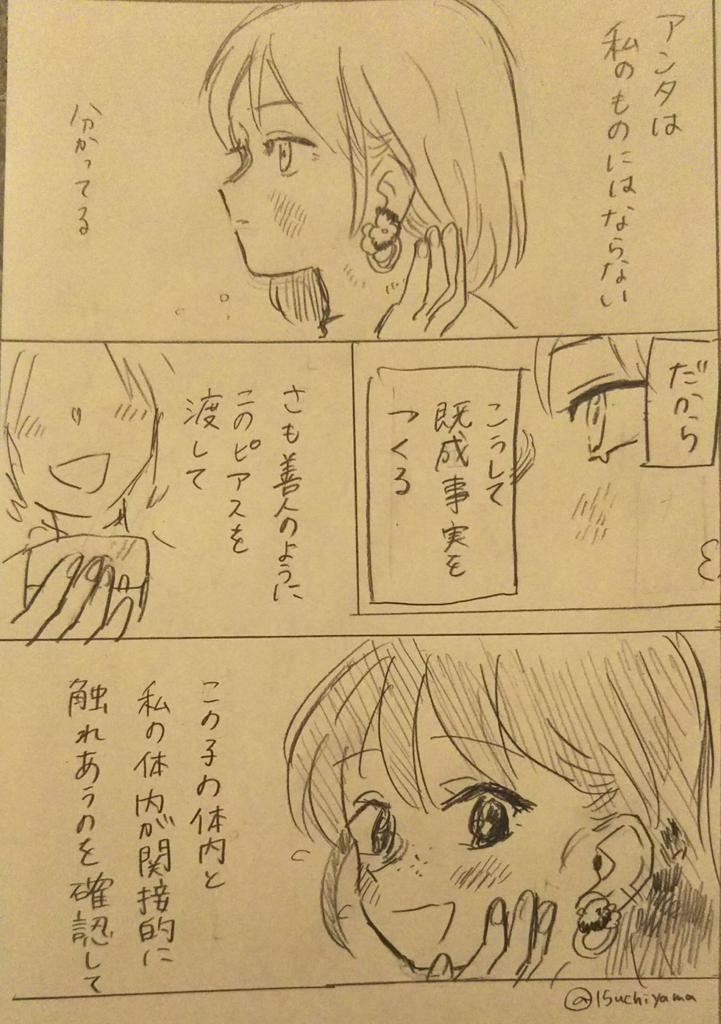 アンタは
私のものにはならない
分かってる
だから
こうして
既成事実を
つくる
さも善人のように
このピアスを
渡して
この子の体内と
私の体内が関接的に
触れあうのを確認して
@15uchiyama